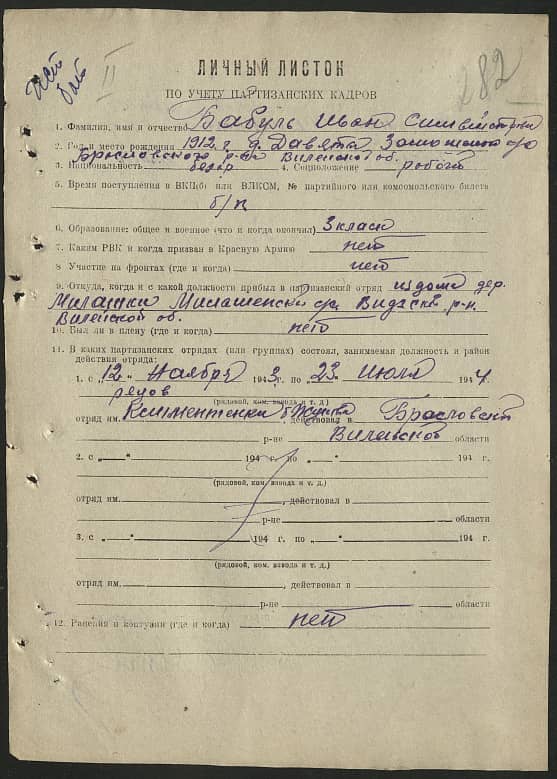 II
282
ЛИЧНЫЙ ЛИСТОК
ПО УЧЕТУ ПАРТИЗАНСКИХ КАДРОВ
1. Фамилия, имя и отчество Бабуль Иван
2. Год и место рождения 1912 г д. Давята
Браславского р-на Вилейской об.
3. Национальность белор 4. Соцположение рабочи
5. Время поступления в ВКП(б) или ВЛКСМ, № партийного или комсомольского билета
б/п
6. Образование: общее и военное (что и когда окончил) 3 класа
7. Каким РВК и когда призван в Красную Армию нет
8 Участие на фронтах (где и когда) нет
9. Откуда, когда и с какой должности прибыл в партизанский отряд из дома дер.
Милашки Милашенски с/с Видзски р-н.
Вилейской об.
10. Был ли в плену (где и когда) нет
11. В каких партизанских отрядах (или группах) состоял, занимаемая должность и район
действия отряда:
1. с "12" Ноября 1943 г. по "23" Июля 1944 г.
рядов
(рядовой, ком. взвода и т. д.)
отряд им. действовал в Браславский
р-не Вилейской области
2. с „ — " 194 г. по „ — " 194 г.
(рядовой, ком. взвода и т. д.)
отряд им. , действовал в
р-не области
3. с „ — " 194 г. по „ — " 194 г.
(рядовой, ком. взвода и т. д.)
отряд им. , действовал в
р-не области
12. Ранения и контузии (где и когда) нет